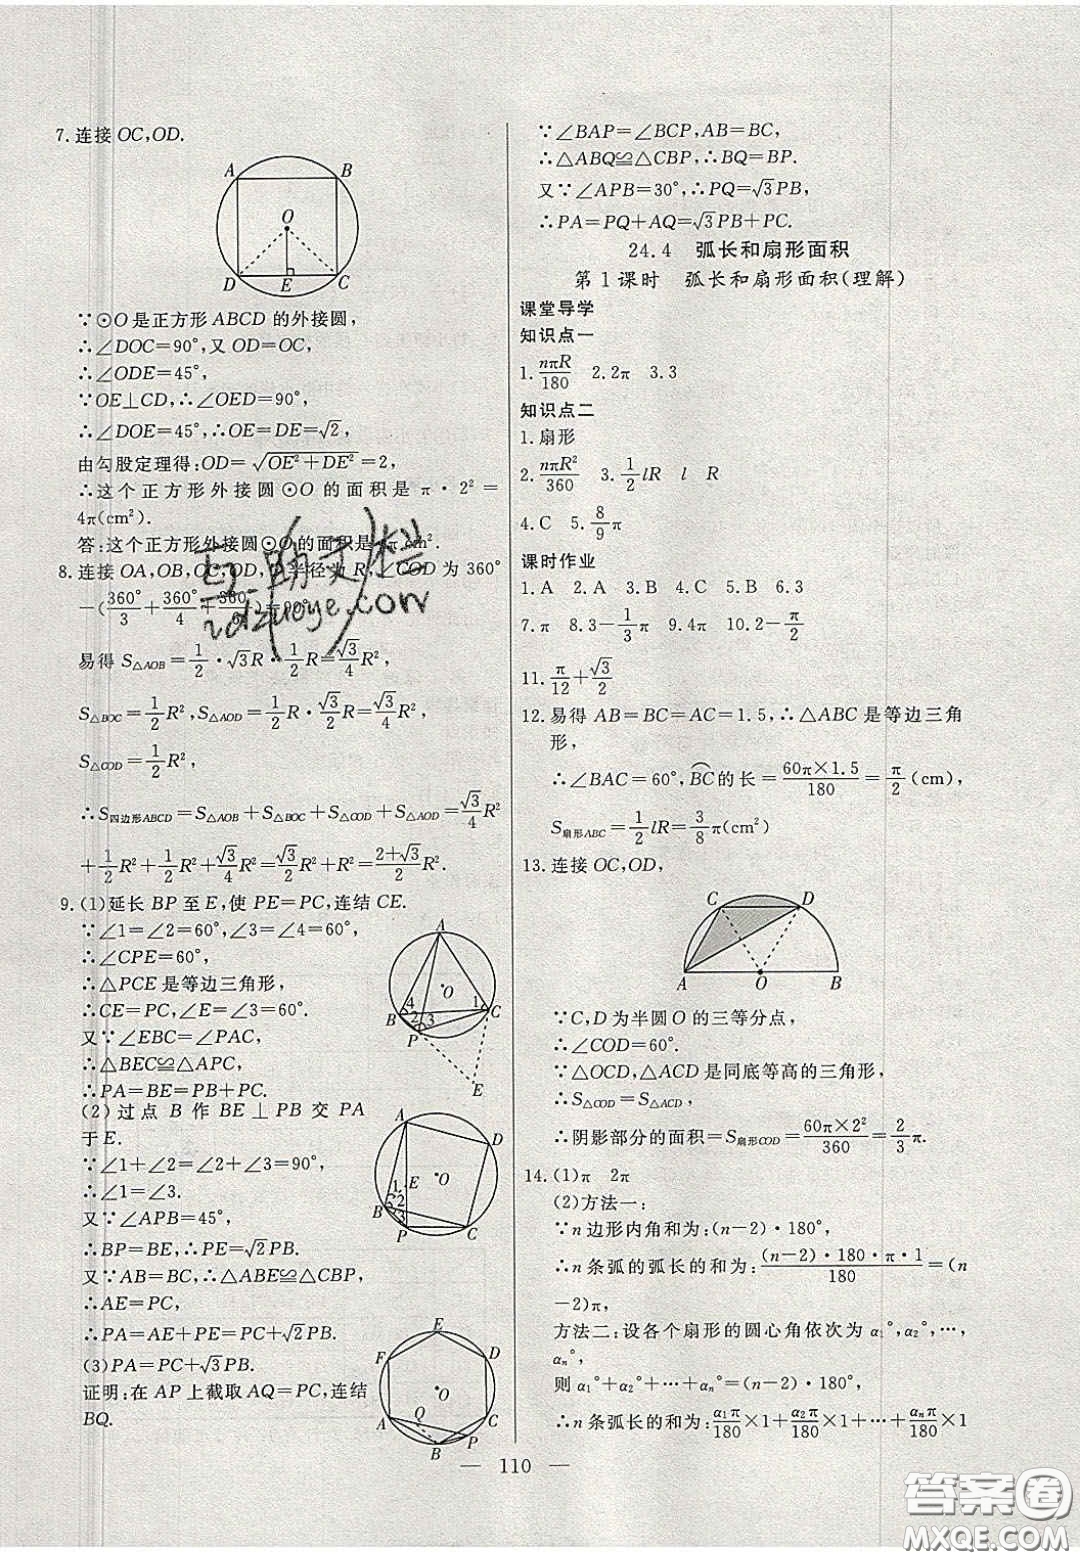 7.连接 OC,OD.
A
B
O
D
E
C
∵⊙O 是正方形 ABCD 的外接圆,
∴∠DOC=90°,又 OD=OC,
∴∠ODE=45°,
∵OE⊥CD,∴∠OED=90°,
∴∠DOE=45°,∴OE=DE=√2,
由勾股定理得:OD=√(OE²+DE²)=2,
∴这个正方形外接圆⊙O 的面积是 π·2²=
4π(cm²).
答:这个正方形外接圆⊙O的面积是 cm².
8.连接 OA,OB,OC,OD, 半径为 R, ∠COD 为 360°
-(360°/3+360°/4+360°/ )=90°
易得 S△AOB=1/2·√3R·1/2R=√3/4R²,
S△BOC=1/2R²,S△AOD=1/2R·√3/2R=√3/4R²,
S△COD=1/2R²,
∴S四边形ABCD=S△AOB+S△BOC+S△COD+S△AOD=√3/4R²
+1/2R²+1/2R²+√3/4R²=√3/2R²+R²=(2+√3)/2R².
9.(1)延长 BP 至 E,使 PE=PC,连结 CE.
∵∠1=∠2=60°,∠3=∠4=60°,
∴∠CPE=60°,
∴△PCE 是等边三角形,
∴CE=PC,∠E=∠3=60°.
又∵∠EBC=∠PAC,
∴△BEC≌△APC,
∴PA=BE=PB+PC.
A
O
B
4
2
3
1
C
P
E
(2)过点 B 作 BE⊥PB 交 PA
于 E.
∵∠1+∠2=∠2+∠3=90°,
∴∠1=∠3.
又∵∠APB=45°,
∴BP=BE,∴PE=√2PB.
又∵AB=BC,∴△ABE≌△CBP,
∴AE=PC,
∴PA=AE+PE=PC+√2PB.
A
D
O
1
E
2
B
3
P
C
(3)PA=PC+√3PB.
证明:在 AP 上截取 AQ=PC,连结
BQ.
E
F
D
O
Q
A
C
B
P
∵∠BAP=∠BCP,AB=BC,
∴△ABQ≌△CBP,∴BQ=BP.
又∵∠APB=30°,∴PQ=√3PB,
∴PA=PQ+AQ=√3PB+PC.
24.4 弧长和扇形面积
第1课时 弧长和扇形面积(理解)
课堂导学
知识点一
1.nπR/180 2.2π 3.3
知识点二
1.扇形
2.nπR²/360 3.1/2lR l R
4.C 5.8/9π
课时作业
1.A 2.A 3.B 4.C 5.B 6.3
7.π 8.3-1/3π 9.4π 10.2-π/2
11.π/12+√3/2
12.易得 AB=BC=AC=1.5,∴△ABC 是等边三角
形,
∴∠BAC=60°,BC⌒的长=60π×1.5/180=π/2(cm),
S扇形ABC=1/2lR=3/8π(cm²)
13.连接 OC,OD,
C
D
A
O
B
∵C,D 为半圆 O 的三等分点,
∴∠COD=60°.
∵△OCD,△ACD 是同底等高的三角形,
∴S△COD=S△ACD,
∴阴影部分的面积=S扇形COD=60π×2²/360=2/3π.
14.(1)π 2π
(2)方法一:
∵n 边形内角和为:(n-2)·180°,
∴n 条弧的弧长的和为:(n-2)·180·π·1/180=(n
-2)π,
方法二:设各个扇形的圆心角依次为 α₁°,α₂°,…,
αₙ°,
则 α₁°+α₂°+…+αₙ°=(n-2)·180°,
∴n 条弧长的和为:α₁π/180×1+α₂π/180×1+…+αₙπ/180×1
— 110 —
答案圈
MXQE.COM